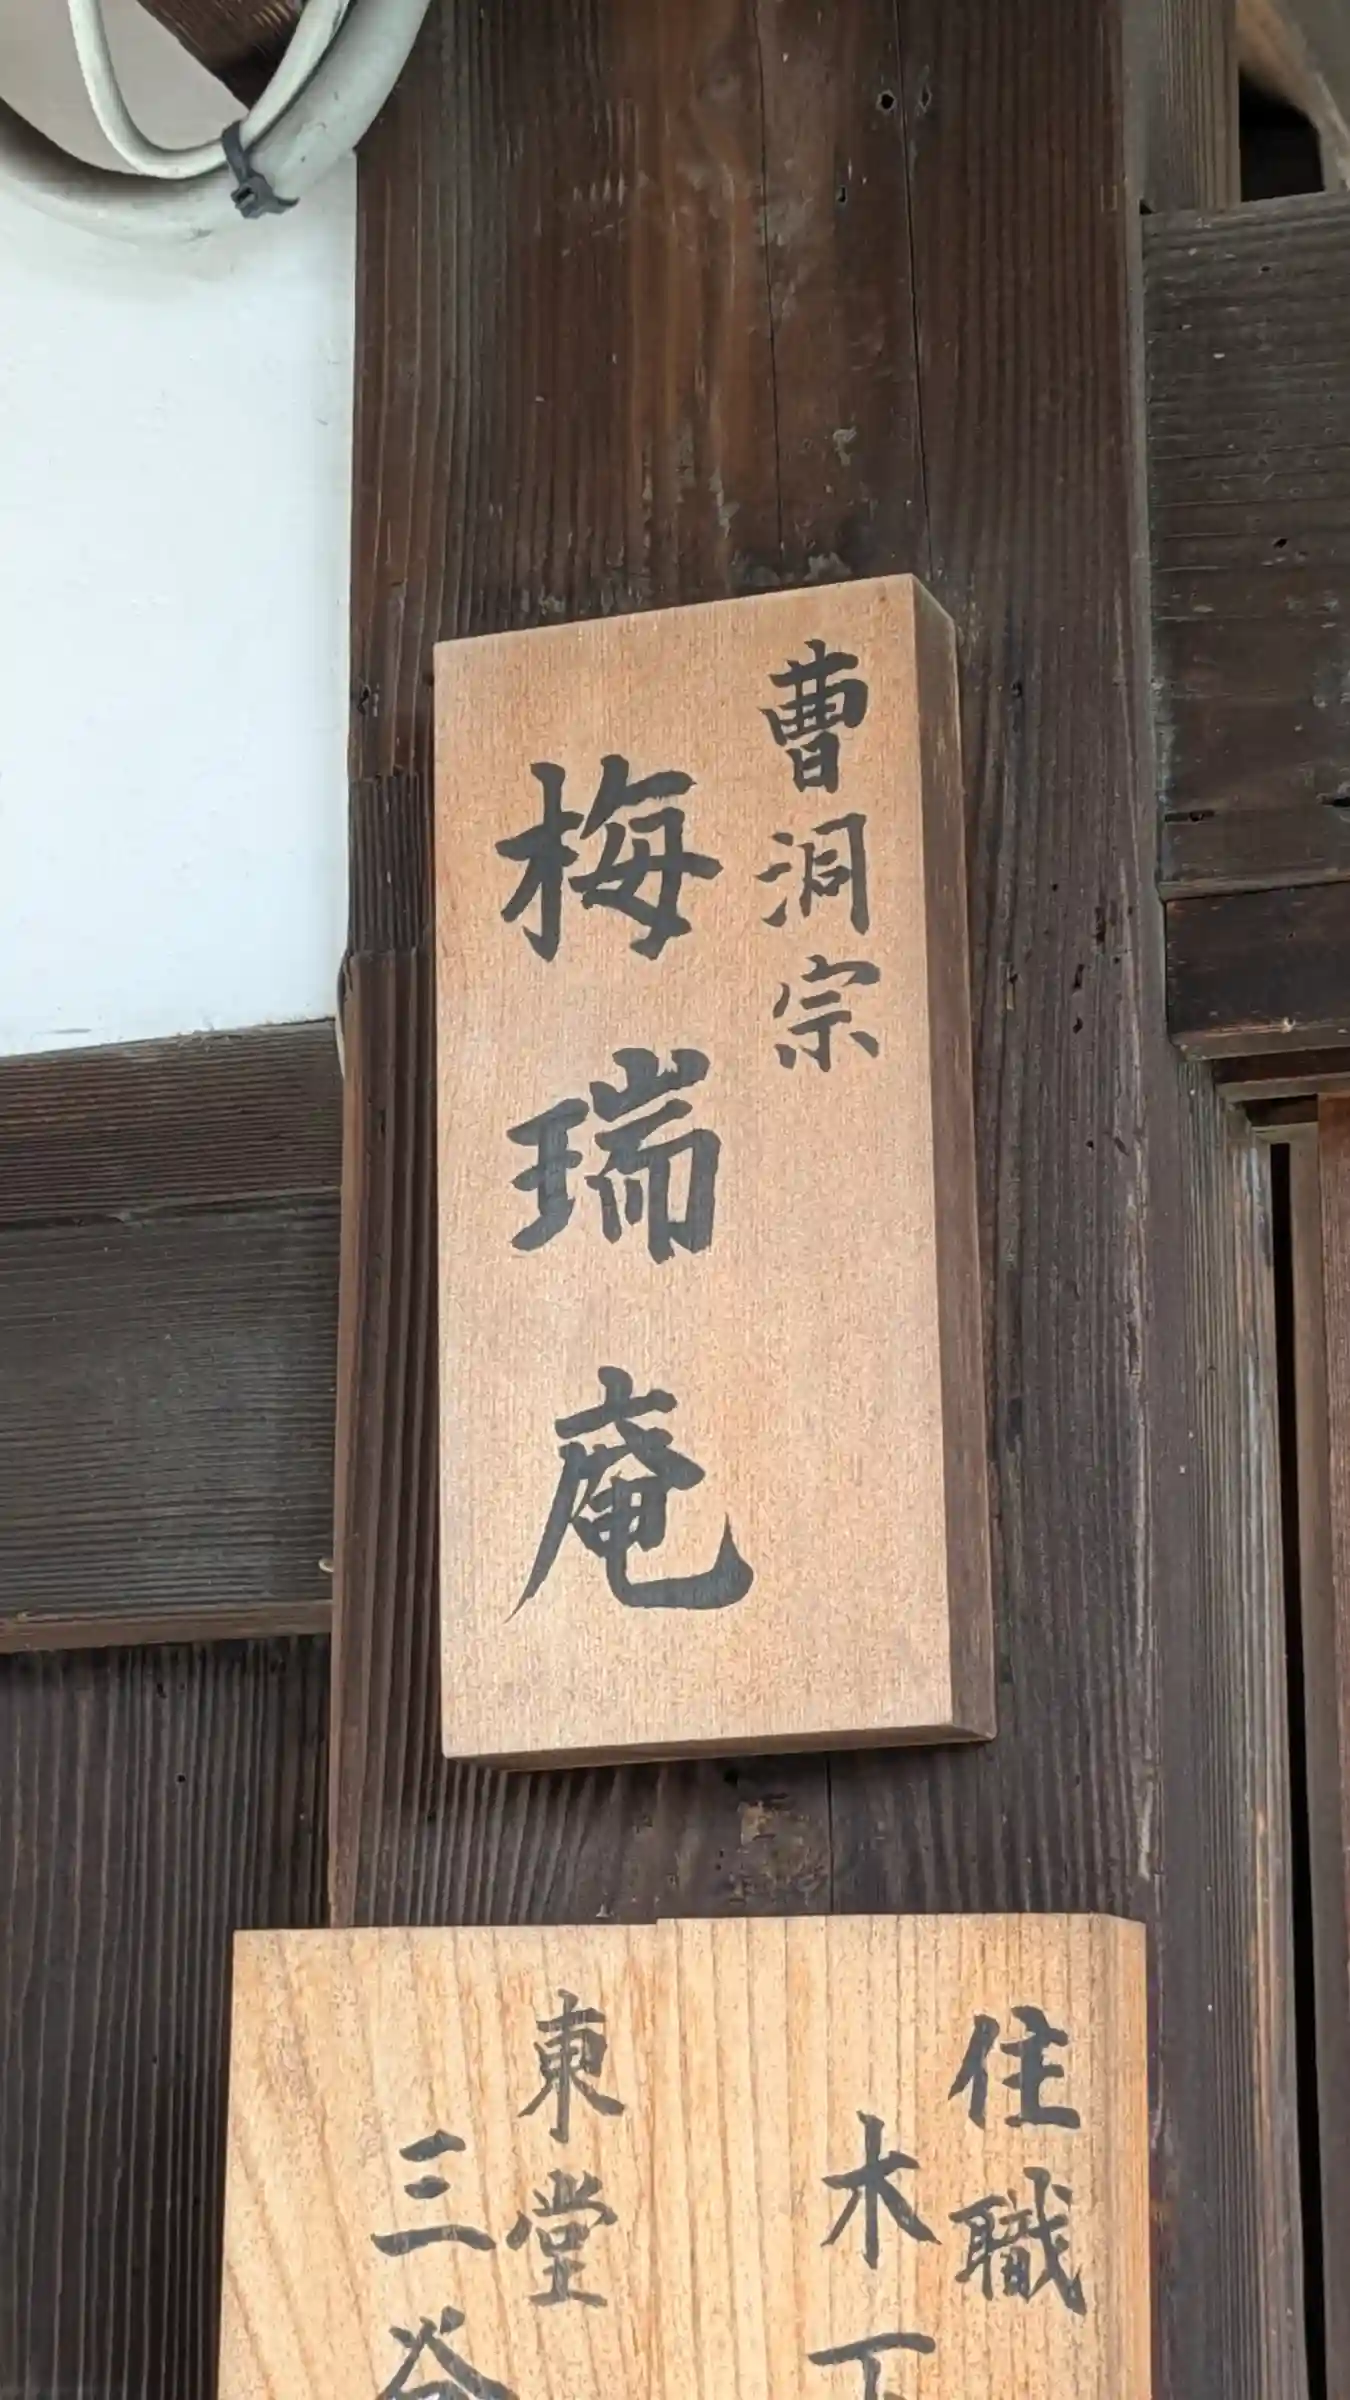 曹洞宗
梅瑞庵
住職
木下
東堂
三谷